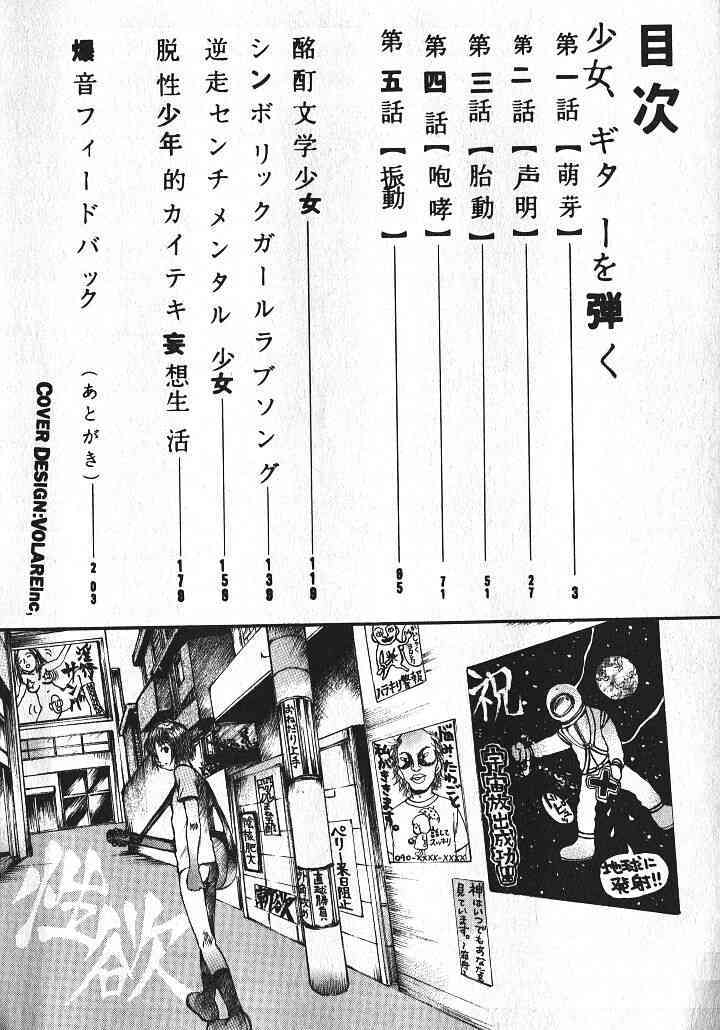 目次
少女、ギターを弾く
第一話【萌芽】 3
第二話【声明】 27
第三話【胎動】 51
第四話【咆哮】 71
第五話【振動】 95
酩酊文学少女 119
シンボリックガールラブソング 139
逆走センチメンタル少女 159
脱性少年的カイテキ妄想生活 179
爆音フィードバック (あとがき) 203
COVER DESIGN:VOLAREInc,
祝
宇宙放出成功!!
地球に
発射!!
ハラキリ警報
悩みたのごと
私がききます。
話して
スッキリ
090-XXXX-XXXX
神はいつでもあなたを
見ています。
おねだり上手
ペリー来日阻止
直球勝負
性欲